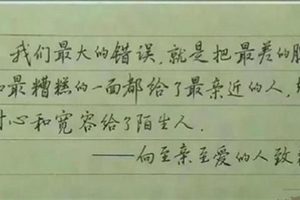 我们最大的错误,就是把最差的
和最糟糕的一面都给了最亲近的人,
耐心和宽容给了陌生人.
——向至亲至爱的人致